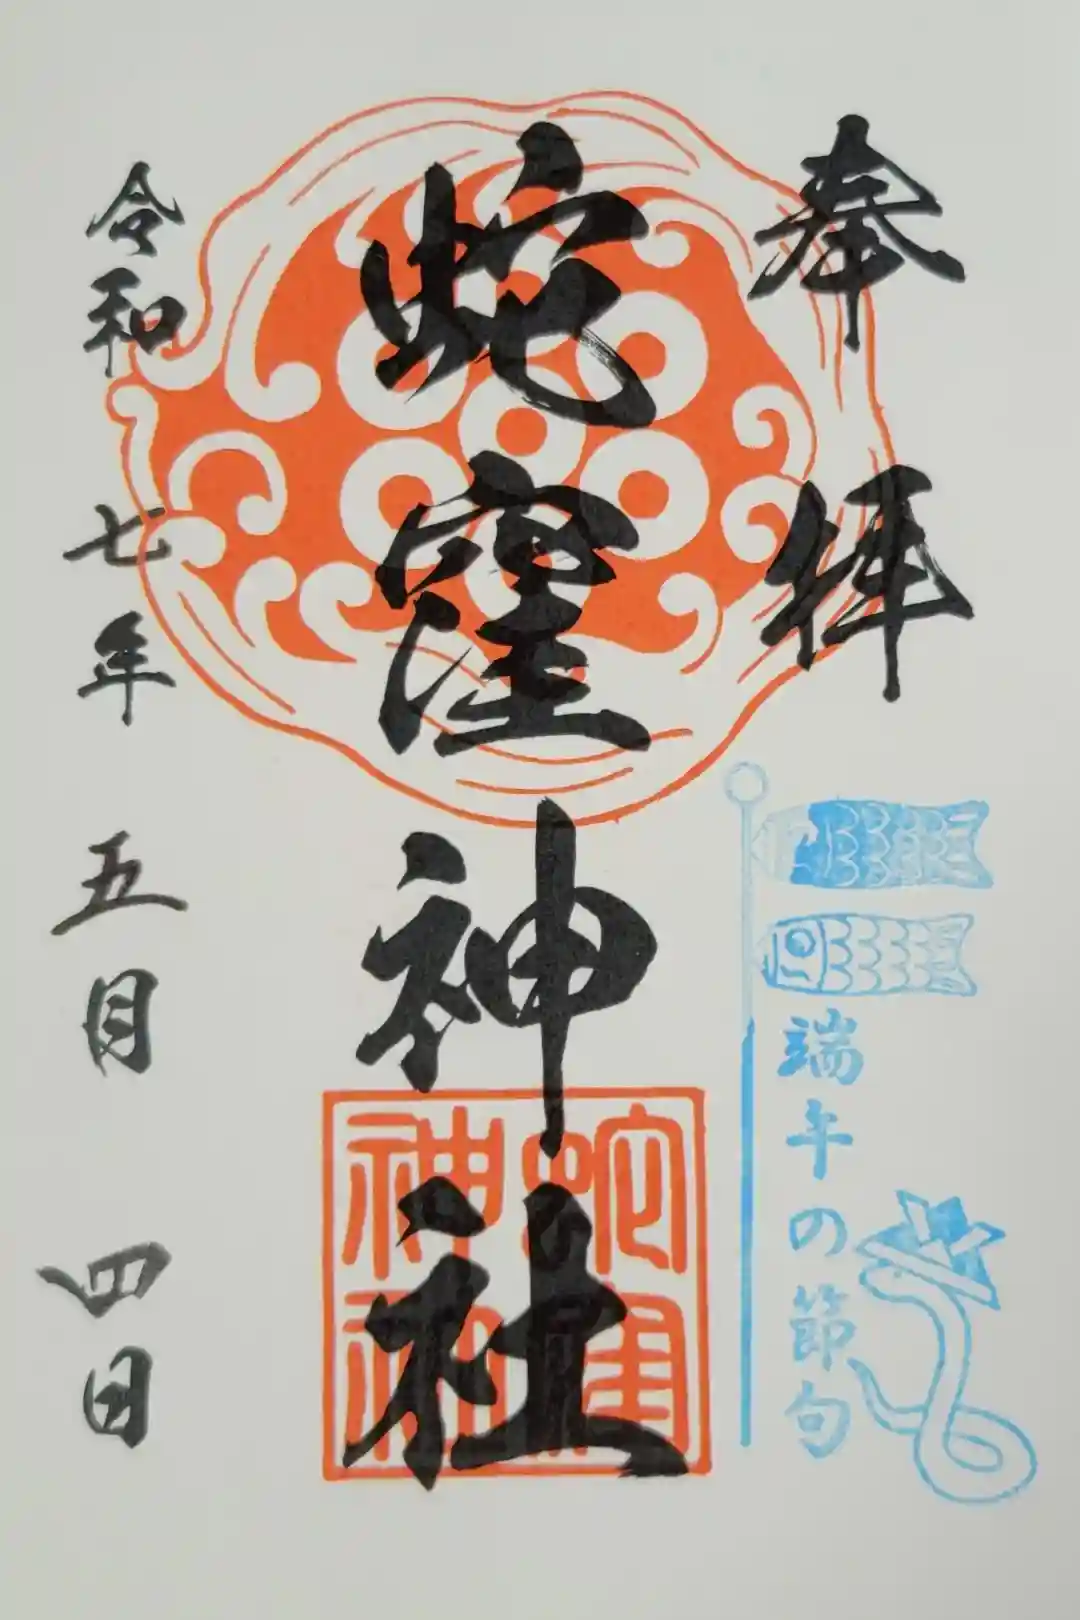 奉拝
端午の節句
蛇窪神社
蛇窪神社
令和七年五月四日